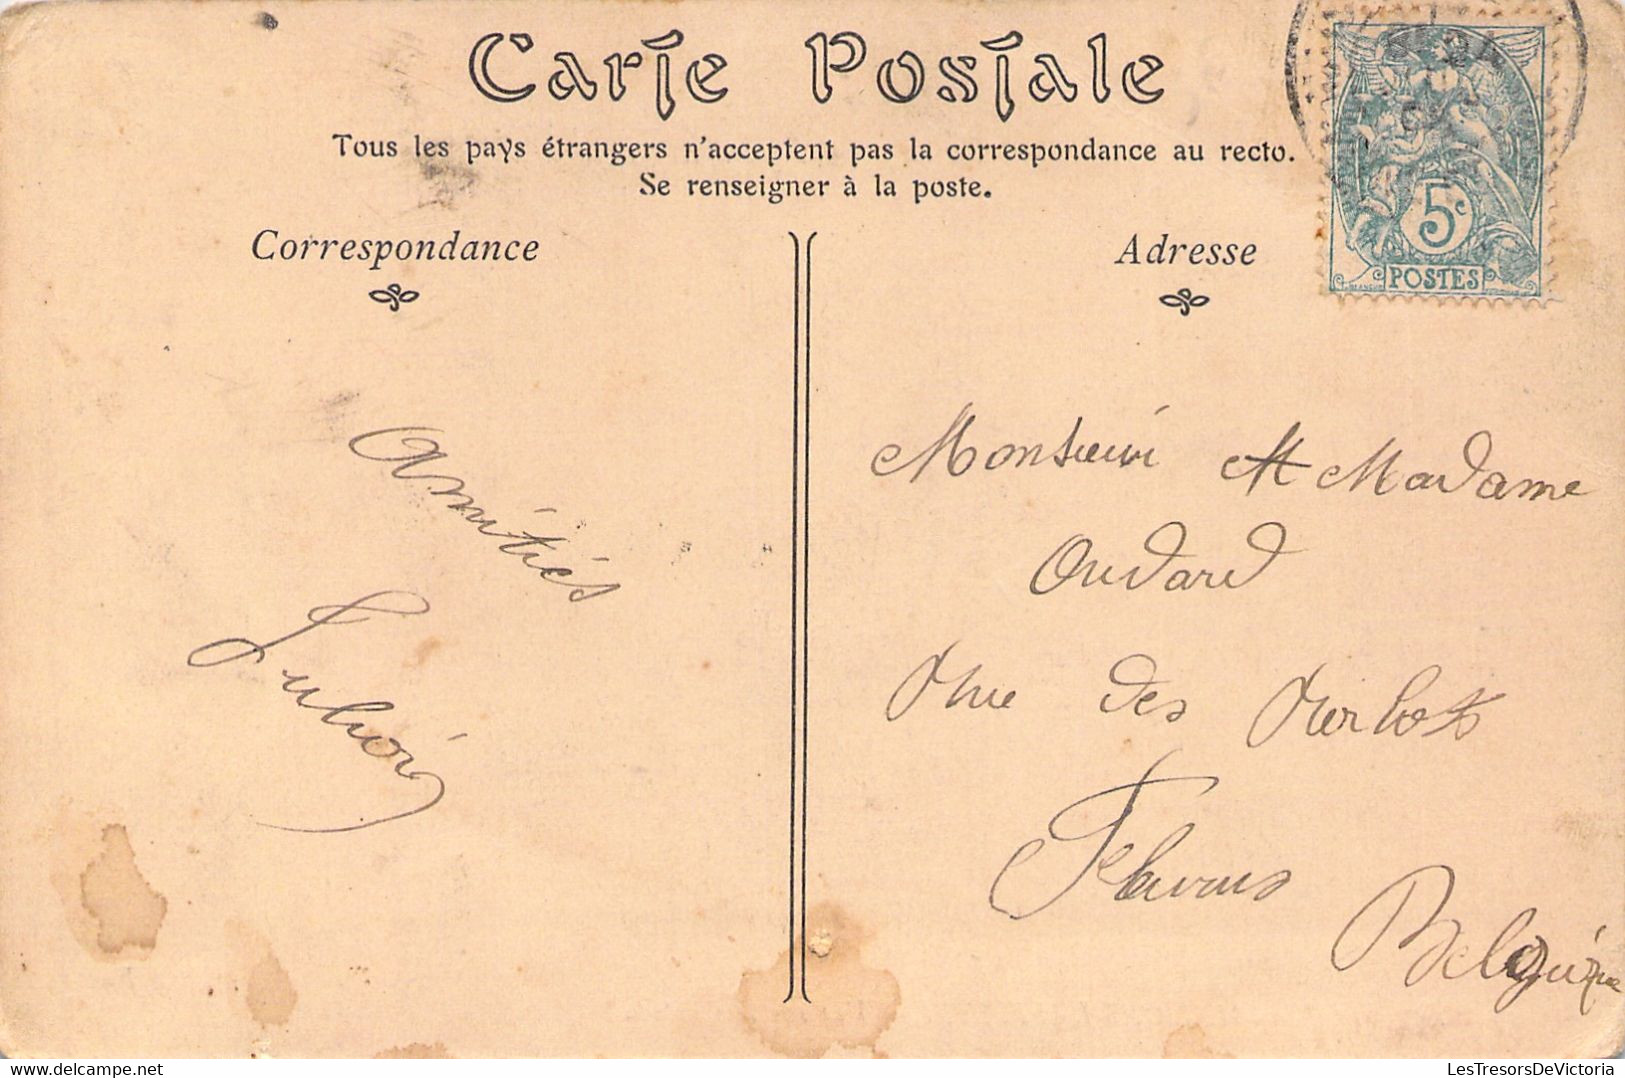 Carte Postale
Tous les pays étrangers n'acceptent pas la correspondance au recto.
Se renseigner à la poste.
Correspondance
Adresse
5c
POSTES
Amitiés
Monsieur et Madame
Oudard
Rue des
Fleurus
Belgique
LesTresorsDeVictoria